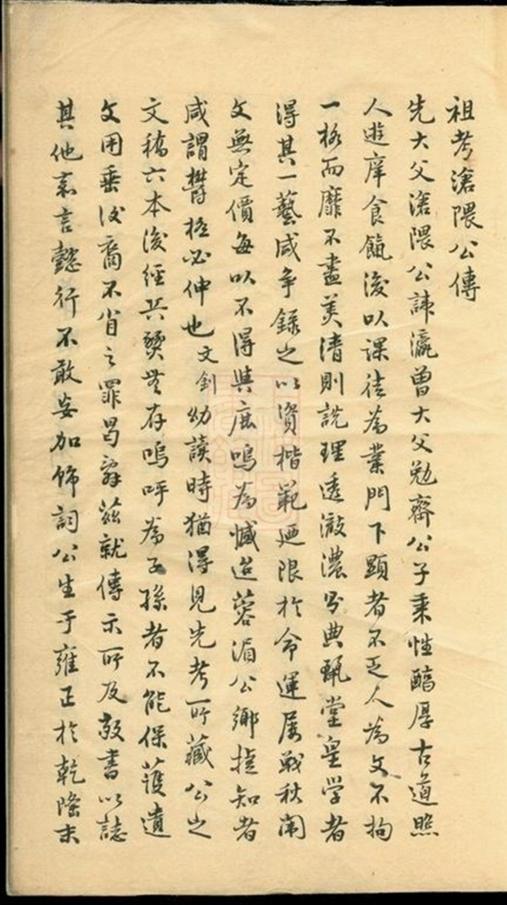 祖考滄隈公傳
先大父滄隈公諱瀛曾大父勉齋公子秉性醇厚古道照
人遊庠食餼後以課徒為業門下顯者不乏人為文不拘
一格而靡不盡美清則說理透澈濃則典麗堂皇學者
得其一藝咸爭錄之以資楷範廼限於命運屢戰秋闈
文無定價每以不得與鹿鳴為憾迨蓉湄公鄉捷知者
咸謂鬱極必伸也文釗幼讀時猶得見先考所藏公之
文稿六本後經兵燹無存嗚呼為子孫者不能保護遺
文用垂後裔不省之罪曷辭茲就傳示所及敬書以誌
其他嘉言懿行不敢妄加飾詞公生于雍正於乾隆末